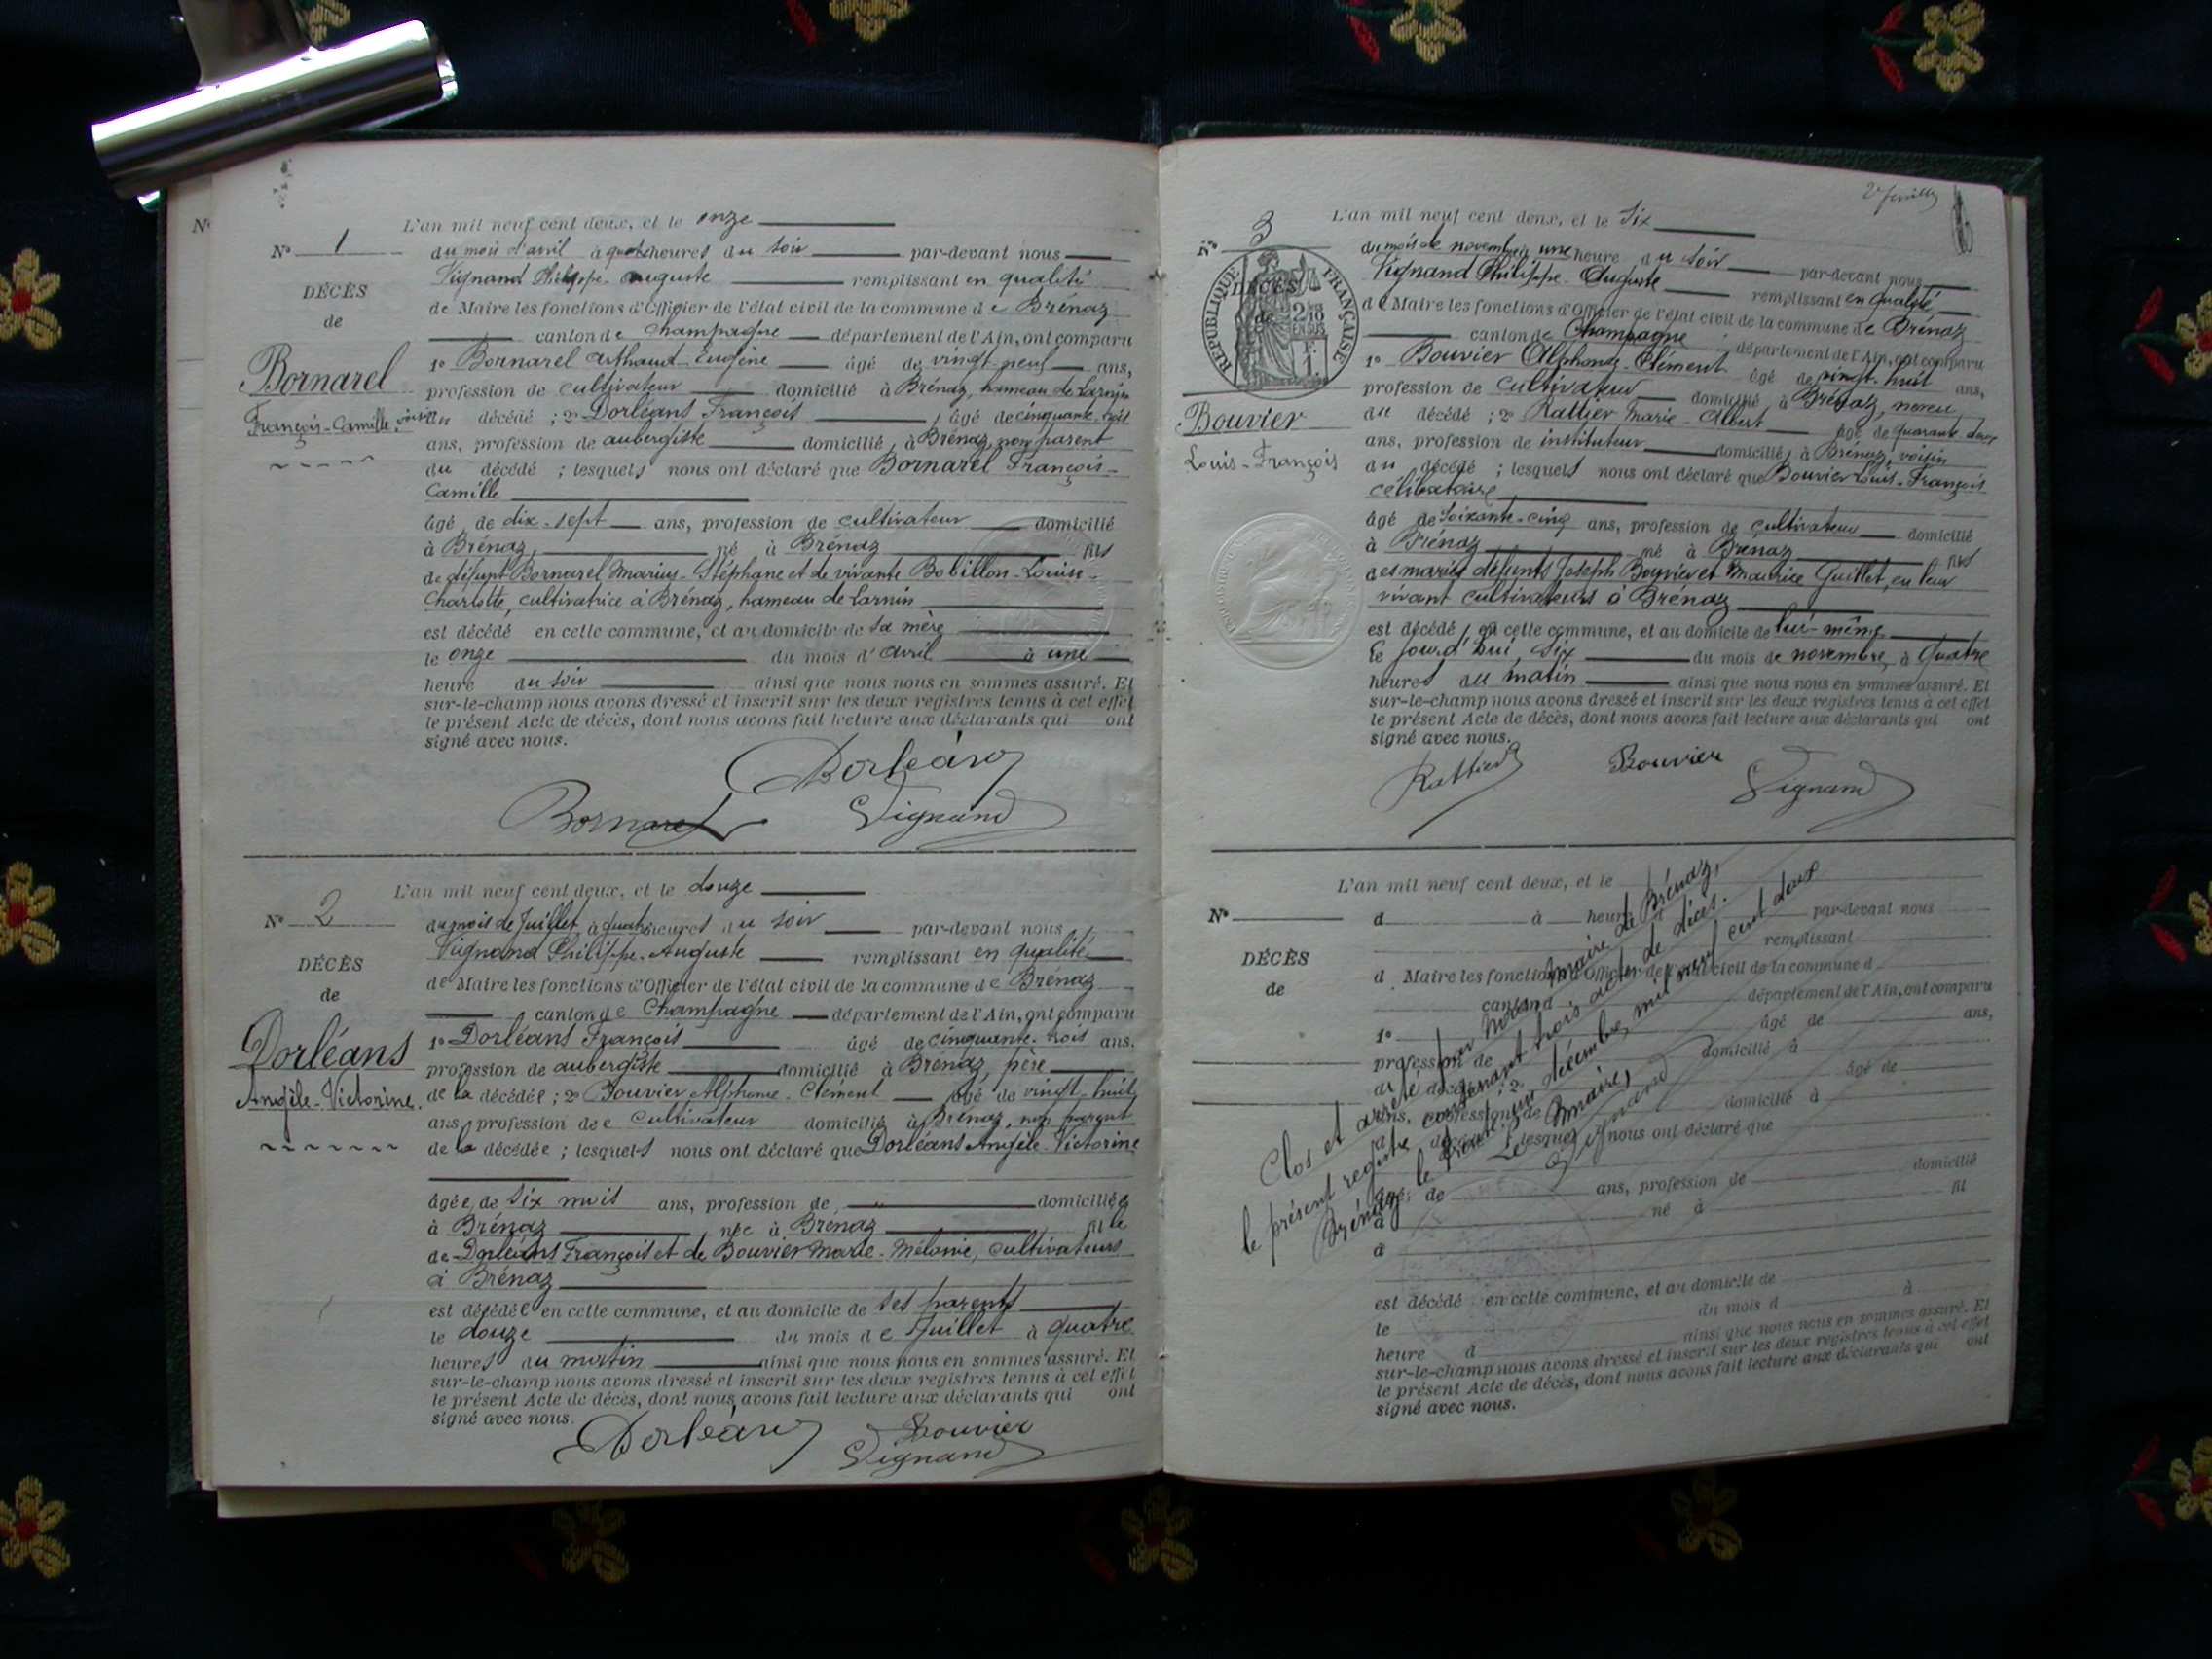 L'an mil neuf cent deux, et le onze
N° 1
du mois d'avril à quatre heures du soir par-devant nous
Vignand Philippe-Auguste remplissant en qualité
DÉCÈS
de Maire les fonctions d'Officier de l'état civil de la commune de Brénaz
de
canton de Champagne département de l'Ain, ont comparu
1° Bornarel Arthaud-Eugène âgé de vingt neuf ans,
Bornarel
profession de cultivateur domicilié à Brénaz, hameau de
François-Camille
du décédé ; 2° Dorléans François, âgé de cinquante
ans, profession de aubergiste domicilié à Brénaz, non parent
du décédé ; lesquels nous ont déclaré que Bornarel François-
Camille
âgé de dix-sept ans, profession de cultivateur domicilié
à Brénaz, né à Brénaz fils
de défunt Bornarel Marius-Stéphane et de vivante Bobillon Louise-
Charlotte, cultivatrice à Brénaz, hameau de
est décédé en cette commune, et au domicile de sa mère
le onze du mois d'avril à une
heure du soir ainsi que nous nous en sommes assuré. Et
sur-le-champ nous avons dressé et inscrit sur les deux registres tenus à cet effet
le présent Acte de décès, dont nous avons fait lecture aux déclarants qui ont
signé avec nous.
Dorléans
Bornarel Vignand
L'an mil neuf cent deux, et le douze
N° 2
du mois de Juillet à quatre heures du soir par-devant nous
Vignand Philippe-Auguste remplissant en qualité
DÉCÈS
de Maire les fonctions d'Officier de l'état civil de la commune de Brénaz
de
canton de Champagne département de l'Ain, ont comparu
1° Dorléans François âgé de cinquante-trois ans.
Dorléans
profession de aubergiste domicilié à Brénaz, père
Angèle-Victorine.
de la décédée ; 2° Bouvier Alphonse-Clément âgé de vingt-huit
ans, profession de cultivateur domicilié à Brénaz, non parent
de la décédée ; lesquels nous ont déclaré que Dorléans Angèle-Victorine
âgée de six mois ans, profession de " domiciliée
à Brénaz née à Brénaz fille
de Dorléans François et de Bouvier Marie-Mélanie, cultivateurs
à Brénaz
est décédée en cette commune, et au domicile de ses parents
le douze du mois de Juillet à quatre
heures du matin ainsi que nous nous en sommes assuré. Et
sur-le-champ nous avons dressé et inscrit sur les deux registres tenus à cet effet
le présent Acte de décès, dont nous avons fait lecture aux déclarants qui ont
signé avec nous.
Dorléans Bouvier
Vignand
2e feuillet
L'an mil neuf cent deux, et le Six
N° 3
du mois de novembre à une heure du soir par-devant nous
Vignand Philippe-Auguste remplissant en qualité
RÉPUBLIQUE FRANÇAISE
2/10 EN SUS
F. 1.
DÉCÈS
de
de Maire les fonctions d'Officier de l'état civil de la commune de Brénaz
canton de Champagne département de l'Ain, ont comparu
1° Bouvier Alphonse-Clément âgé de vingt-huit ans,
profession de cultivateur domicilié à Brénaz, neveu
Bouvier
Louis-François
du décédé ; 2° Rattier Marie-Albert âgé de quarante-deux
ans, profession de instituteur domicilié à Brénaz, voisin
du décédé ; lesquels nous ont déclaré que Bouvier Louis-François
célibataire
âgé de soixante-cinq ans, profession de cultivateur domicilié
à Brénaz né à Brénaz fils
des mariés défunts Joseph Bouvier et Maurice Guillet, en leur
vivant cultivateurs à Brénaz
est décédé en cette commune, et au domicile de lui-même
le jour d'hui, six du mois de novembre, à quatre
heures du matin ainsi que nous nous en sommes assuré. Et
sur-le-champ nous avons dressé et inscrit sur les deux registres tenus à cet effet
le présent Acte de décès, dont nous avons fait lecture aux déclarants qui ont
signé avec nous.
Rattier Bouvier Vignand
L'an mil neuf cent deux, et le
N°
d à heure d par-devant nous
remplissant
DÉCÈS
d Maire les fonctions d'Officier de l'état civil de la commune d
de
canton d département de l'Ain, ont comparu
1° âgé de ans,
profession de domicilié à
du décédé ; 2° âgé de
ans, profession de domicilié à
d décédé ; lesquels nous ont déclaré que
âgé de ans, profession de domicilié
à né à fil
d
est décédé en cette commune, et au domicile de
le du mois d à
heure d ainsi que nous nous en sommes assuré. Et
sur-le-champ nous avons dressé et inscrit sur les deux registres tenus à cet effet
le présent Acte de décès, dont nous avons fait lecture aux déclarants qui ont
signé avec nous.
Clos et arrêté par nous Maire de Brénaz,
le présent registre contenant trois actes de décès.
Brénaz, le trente-un décembre mil neuf cent deux
Le Maire,
Vignand